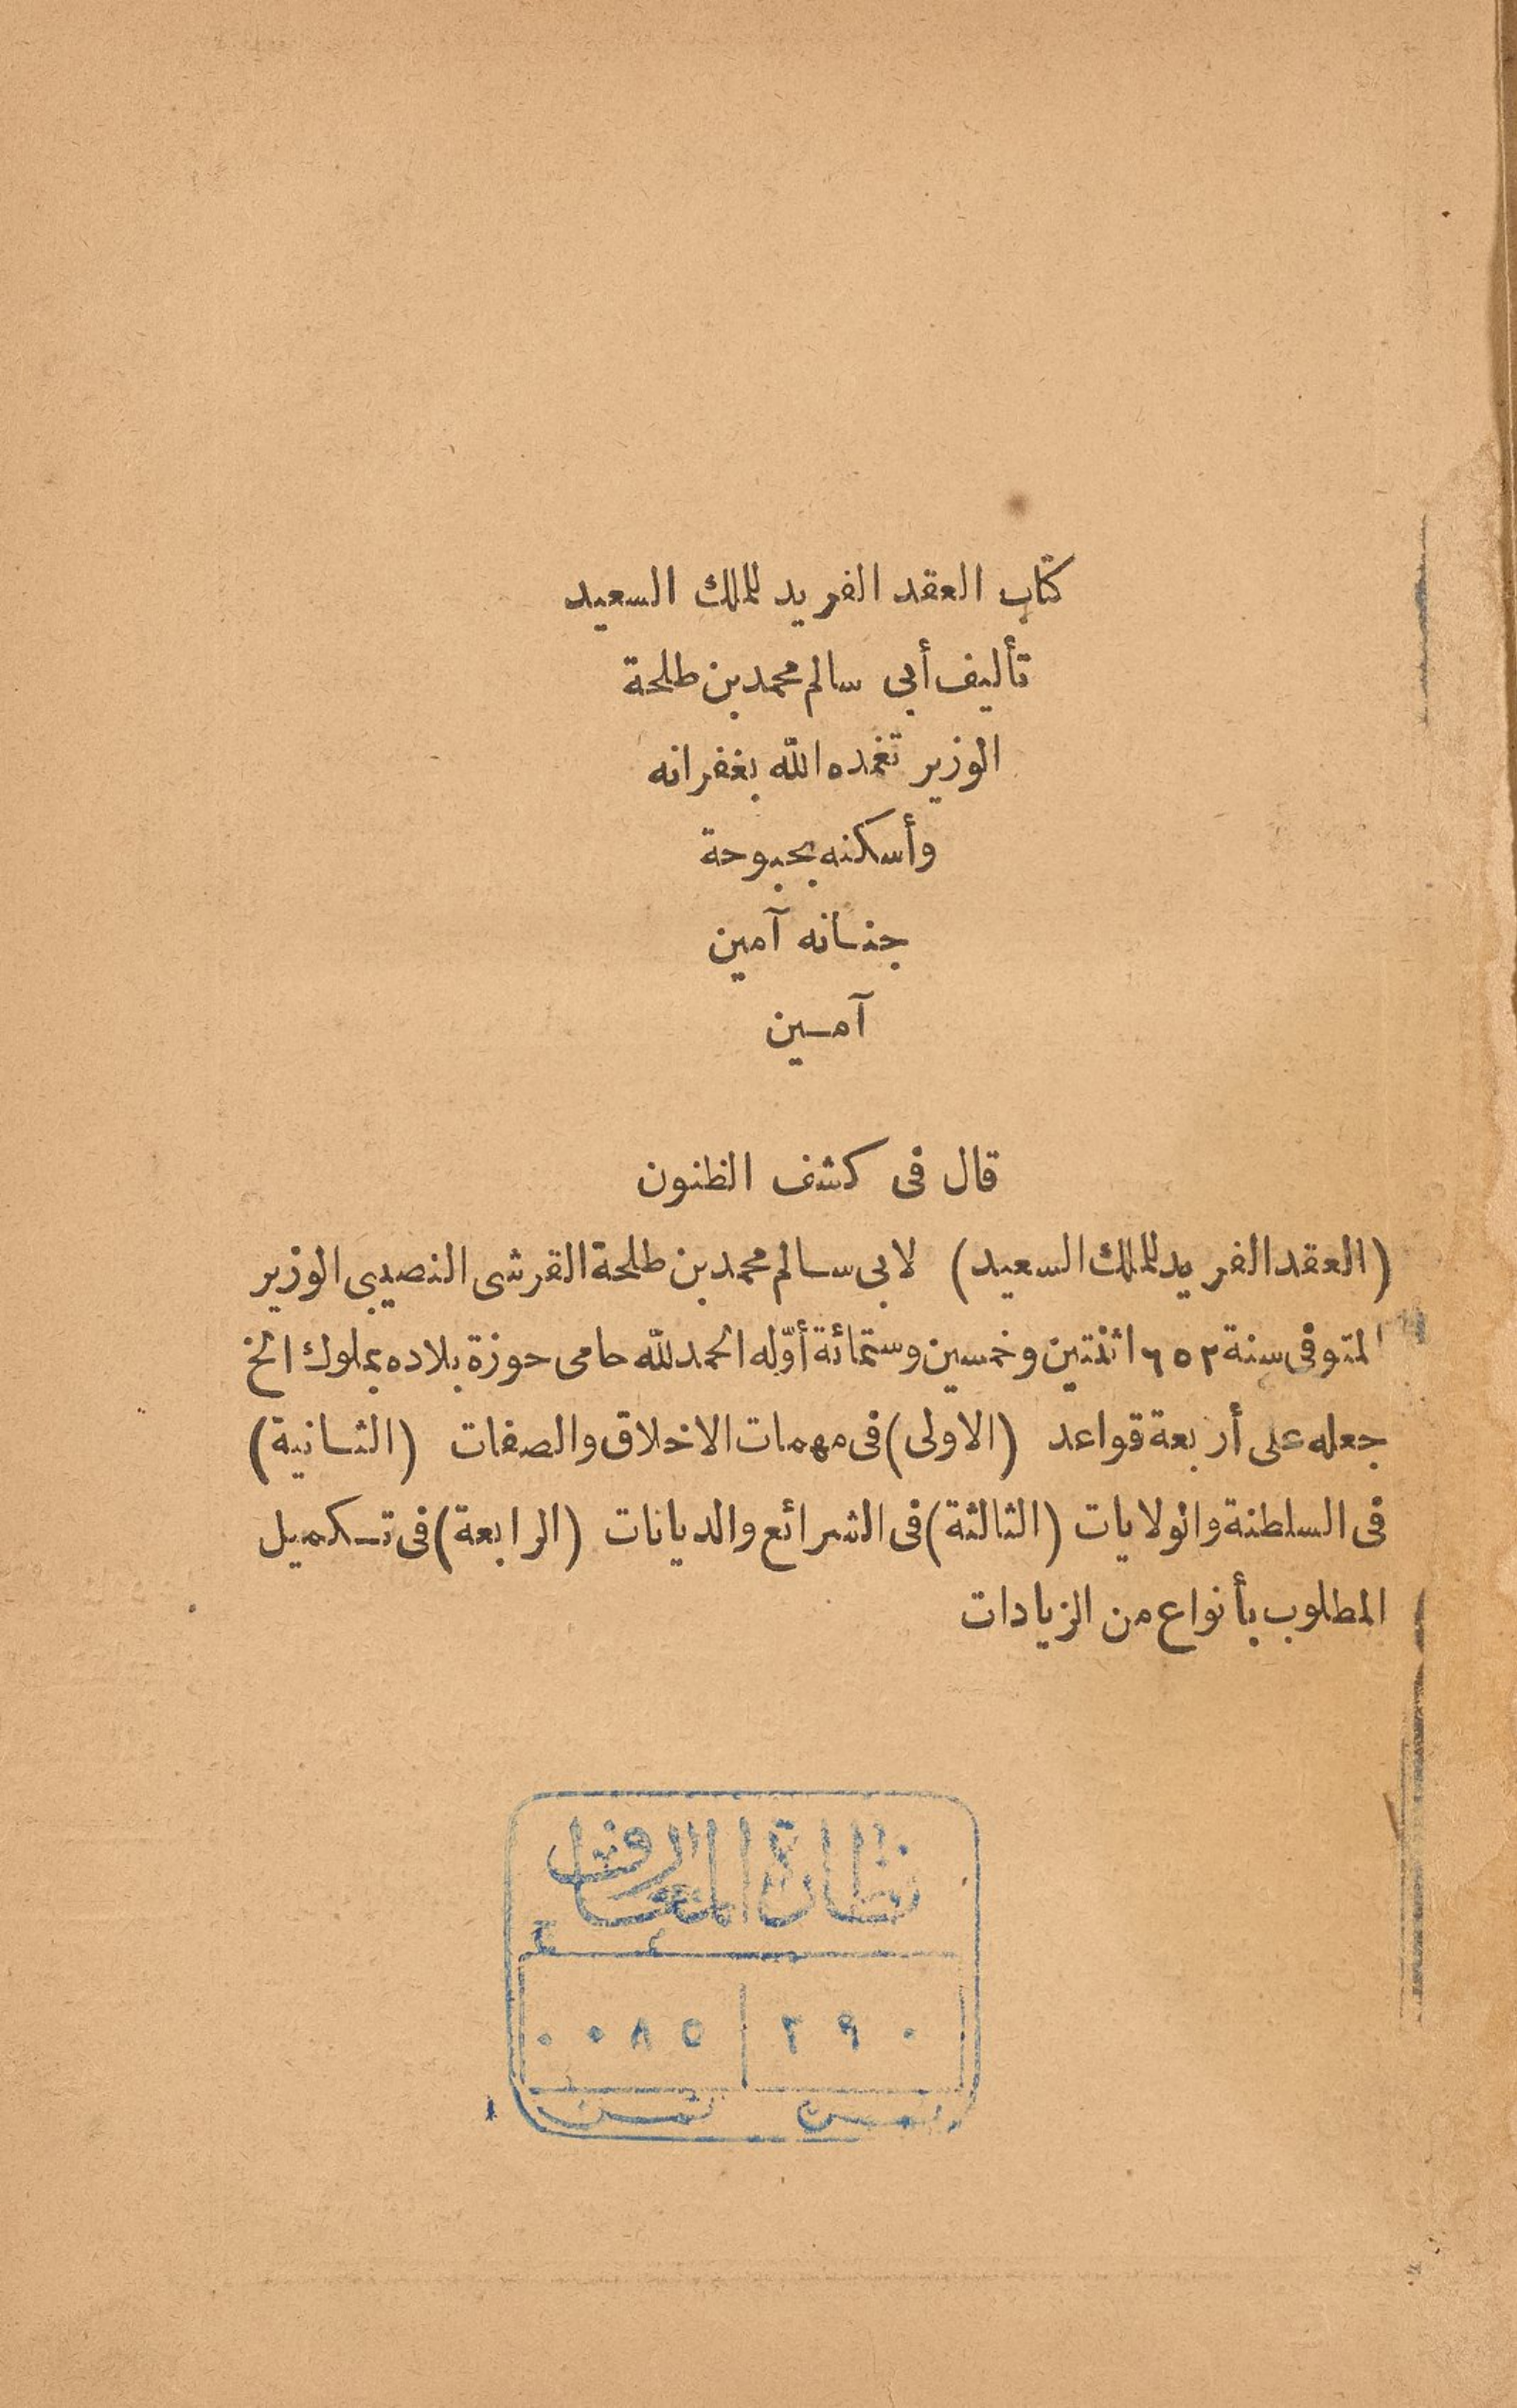 كتاب العقد الفريد للملك السعيد
تأليف أبى سالم محمد بن طلحة
الوزير تغمده الله بغفرانه
وأسكنه بحبوحة
جنانه آمين
آمين
قال فى كشف الظنون
(العقد الفريد للملك السعيد) لابى سالم محمد بن طلحة القرشى النصيبى الوزير
المتوفى سنة ٦٥٢ اثنتين وخمسين وستمائة أوّله الحمد لله حامى حوزة بلاده بملوك الخ
جعله على أربعة قواعد (الاولى) فى مهمات الاخلاق والصفات (الثانية)
فى السلطنة والولايات (الثالثة) فى الشرائع والديانات (الرابعة) فى تكميل
المطلوب بأنواع من الزيادات
نظارة المعارف
٠ ٩ ٢ | ٥ ٨ ٠ ٠